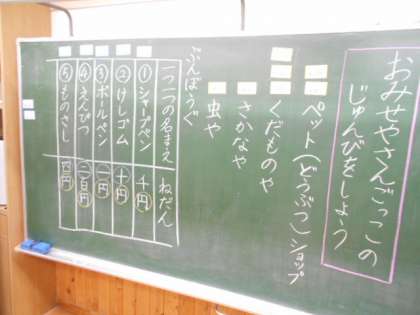 おみせやさんごっこの
じゅんびをしよう
ペット(どうぶつ)ショップ
くだものや
さかなや
虫や
ぶんぼうぐ
一つ一つの名まえ ねだん
①シャープペン 千円
②けしゴム 十円
③ボールペン 一円
④えんぴつ 二百円
⑤ものさし 四円